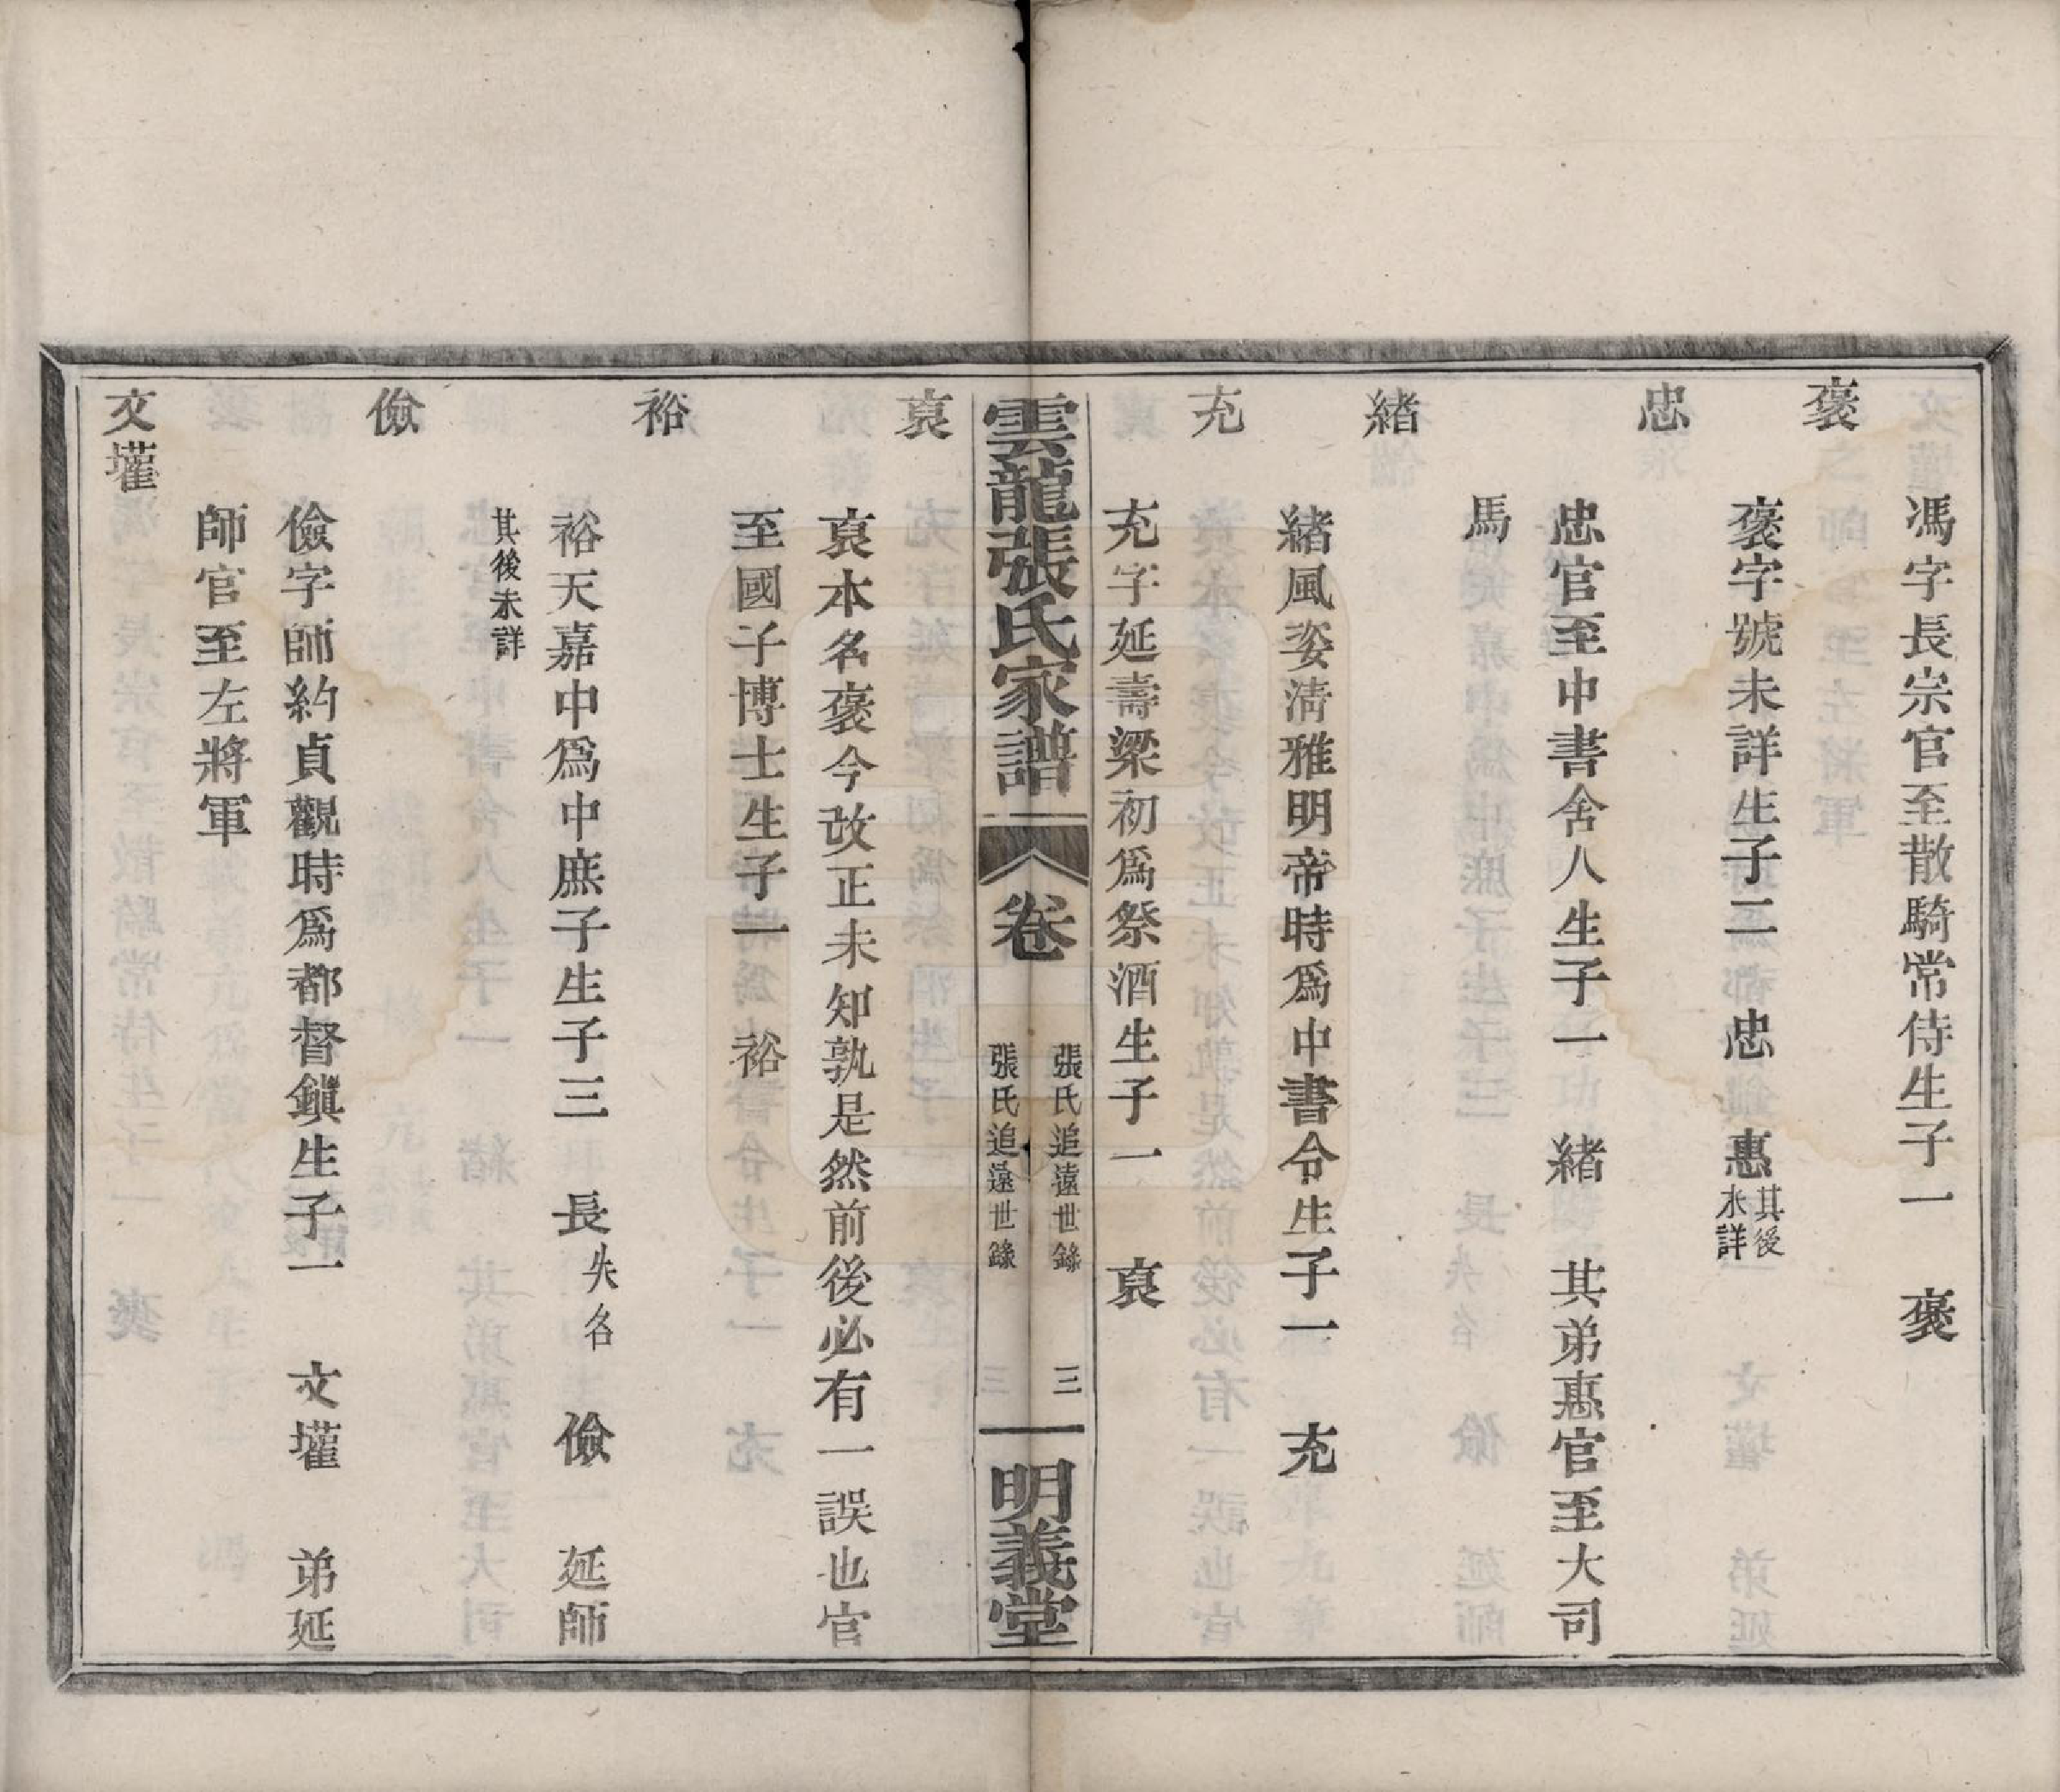 馮字長宗官至散騎常侍生子一　褒
褒
褒字號未詳生子二　忠　惠其後未詳
忠
忠官至中書舍人生子一　緒　其弟惠官至大司
馬
緒
緒風姿淸雅明帝時爲中書令生子一　充
充
充字延壽梁初爲祭酒生子一　裒
雲龍張氏家譜　卷　張氏追遠世錄　三　明義堂
張氏追遠世錄　三
裒
裒本名褒今改正未知孰是然前後必有一誤也官
至國子博士生子一　裕
裕
裕天嘉中爲中庶子生子三　長失名　儉　延師
其後未詳
儉
儉字師約貞觀時爲都督鎭生子一　文瓘　弟延
師官至左將軍
文瓘